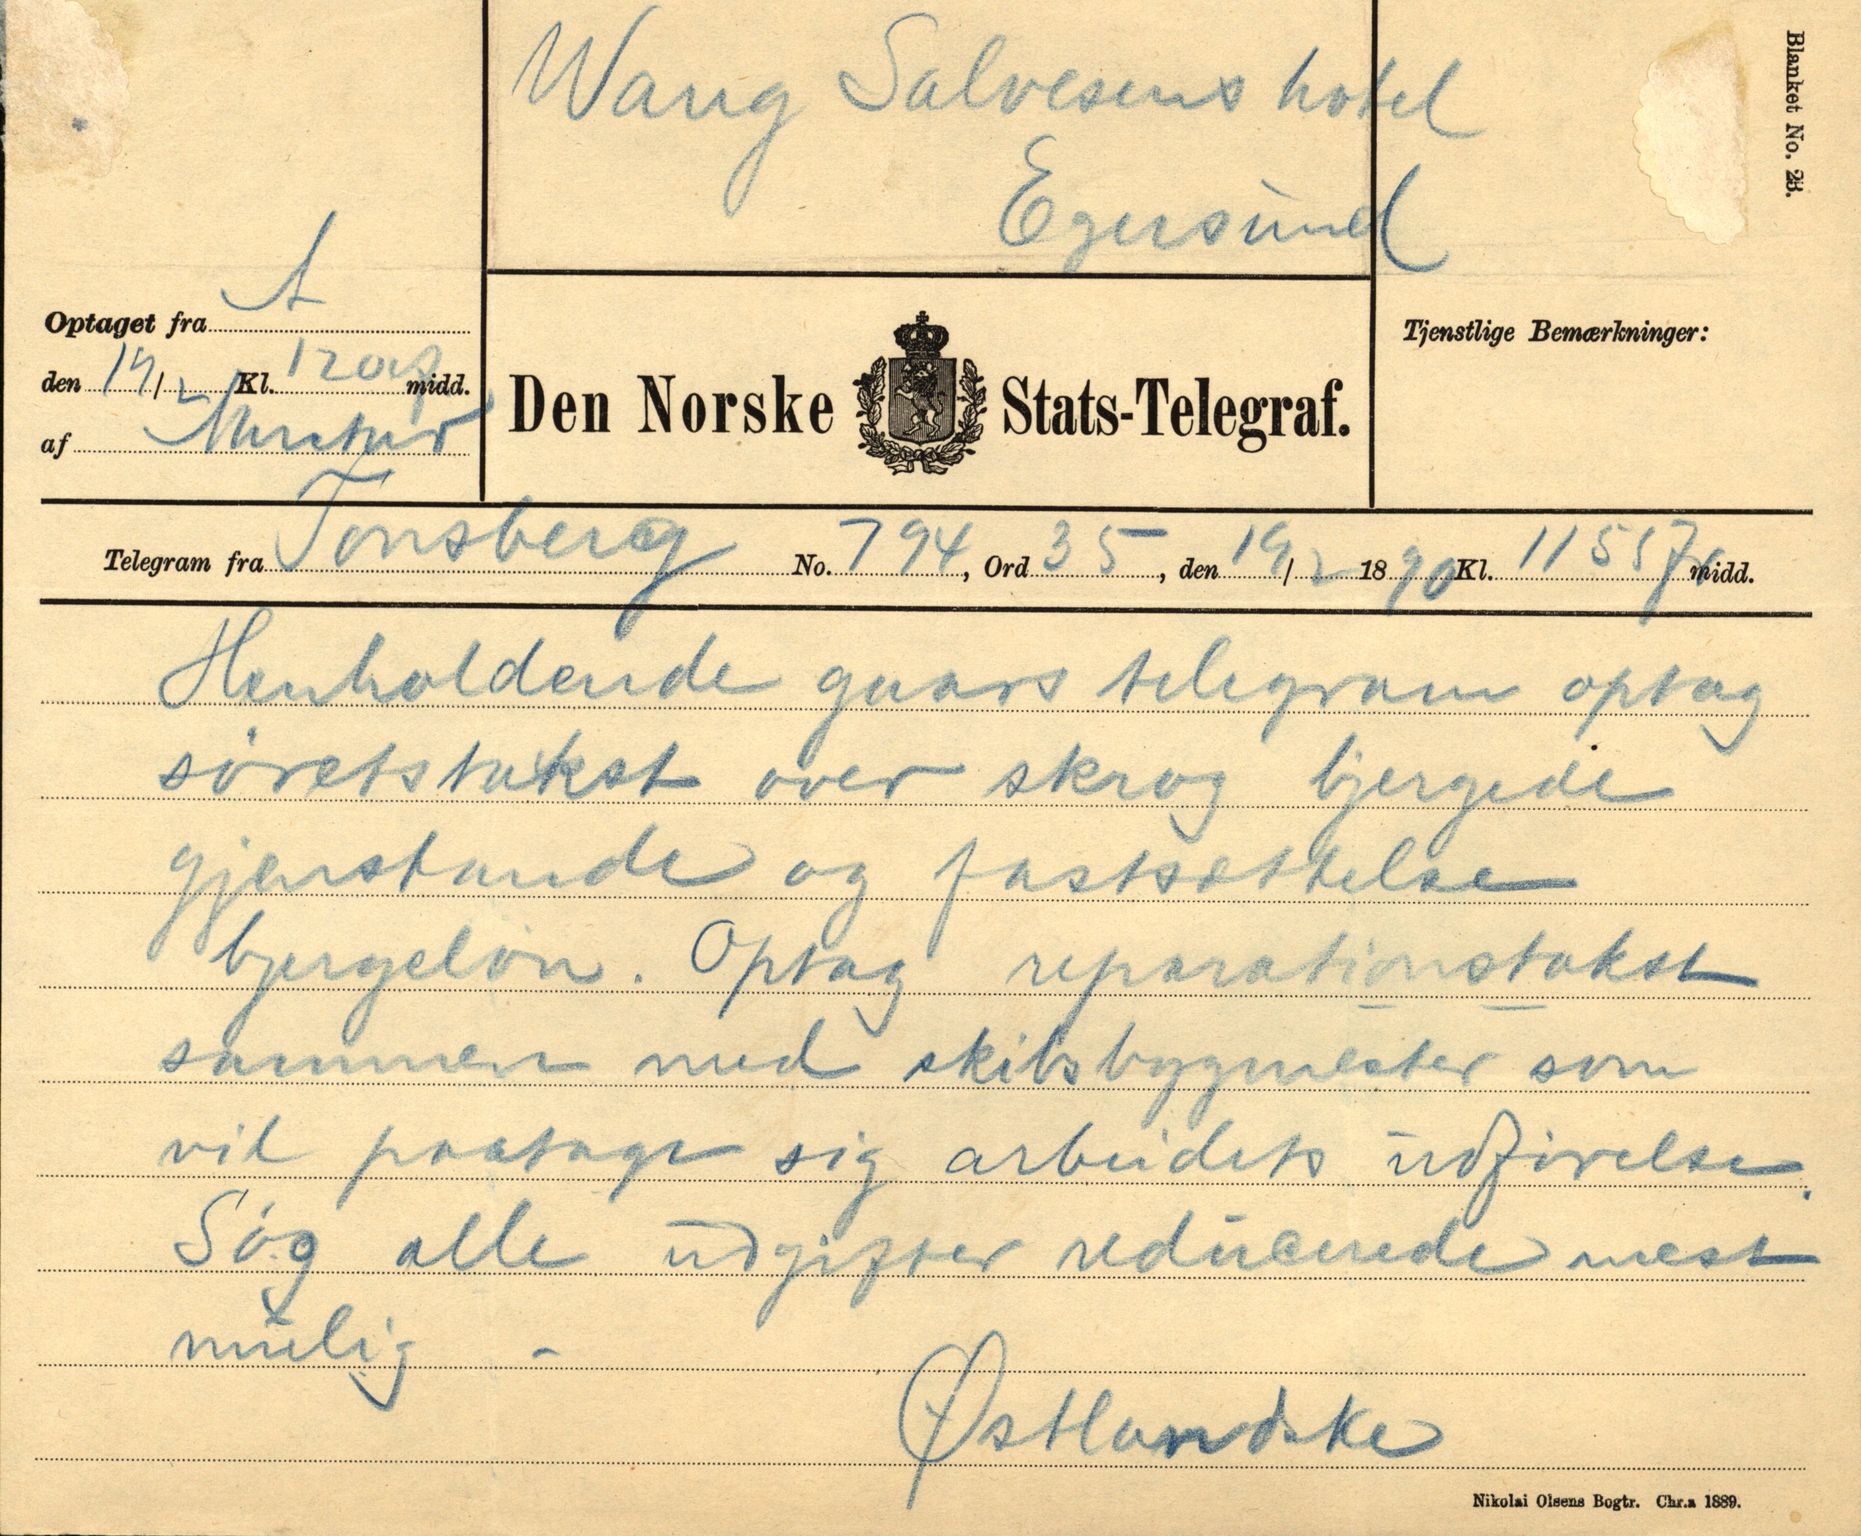 Wang Salvesens hotel
Egersund
Blanket No. 23.
Optaget fra A
den 19/2 Kl. 120 midd.
af
Den Norske Stats-Telegraf.
Tjenstlige Bemærkninger:
Telegram fra Tonsberg No. 794, Ord 35, den 19/2 1890 Kl. 1155 midd.
Henholdende gaars telegram optag
søretstakst over skrog bjergede
gjenstande og fastsættelse
bjergeløn. Optag reparationstakst
sammen med skibsbygmester som
vil paatage sig arbeidets udførelse.
Søg alle udgifter reducerede mest
mulig -
Østlandske
Nikolai Olsens Bogtr. Chr.a 1889.